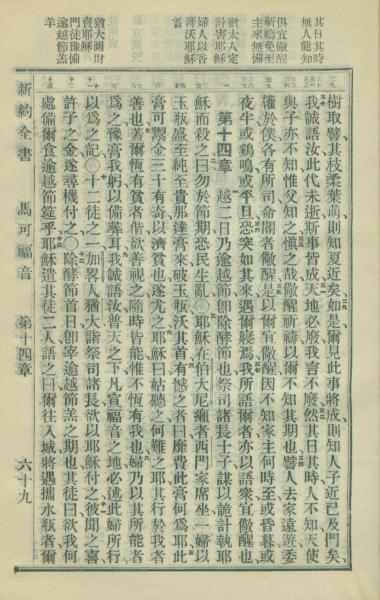 其日其時
無人能知
俱宜儆醒
祈禱免至
主來無備
猶太人定
計害耶穌
婦人以香
膏沃耶穌
首
猶大圖財
賣耶穌
門徒豫備
逾越節羔
羊
樹取譬其枝柔葉萌則知夏近矣如是爾見此事將成則知人子近已及門矣
我誠語汝此代未逝斯事皆成天地必廢我言不廢然其日其時人不知天使
與子亦不知惟父知之愼之哉儆醒祈禱以爾不知其期也譬人去家遠遊委
權於僕各有所司命閽者儆醒是以爾宜儆醒因不知家主何時至或昏暮或
夜半或鷄鳴或平旦恐突如其來遇爾寢焉我所語爾者亦以語衆宜儆醒也
第十四章 越二日乃逾越節卽除酵節也祭司諸長士子謀以詭計執耶
穌而殺之曰勿於節期恐民生亂○耶穌在伯大尼癩者西門家席坐一婦以
玉瓶盛至純至貴那達膏來破玉瓶沃其首有憾之者曰糜費此膏何爲耶此
膏可鬻金三十有奇以濟貧也遂尤之耶穌曰姑聽之何難之耶其行於我者
善也蓋爾恆有貧者偕欲善視之隨時皆能惟不恆有我也婦乃以其所能者
爲之豫膏我躬以備葬耳我誠語汝普天之下凡宣福音之地必述此婦所行
以爲之記○十二徒之一加畧人猶大詣祭司諸長欲以耶穌付之彼聞之喜
許予之金遂尋機付之○除酵節首日卽宰逾越節羔之期也其徒曰欲我何
處備爾食逾越節筵乎耶穌遣其徒二人語之曰爾往入城將遇攜水瓶者爾
新約全書 馬可福音 第十四章 六十九